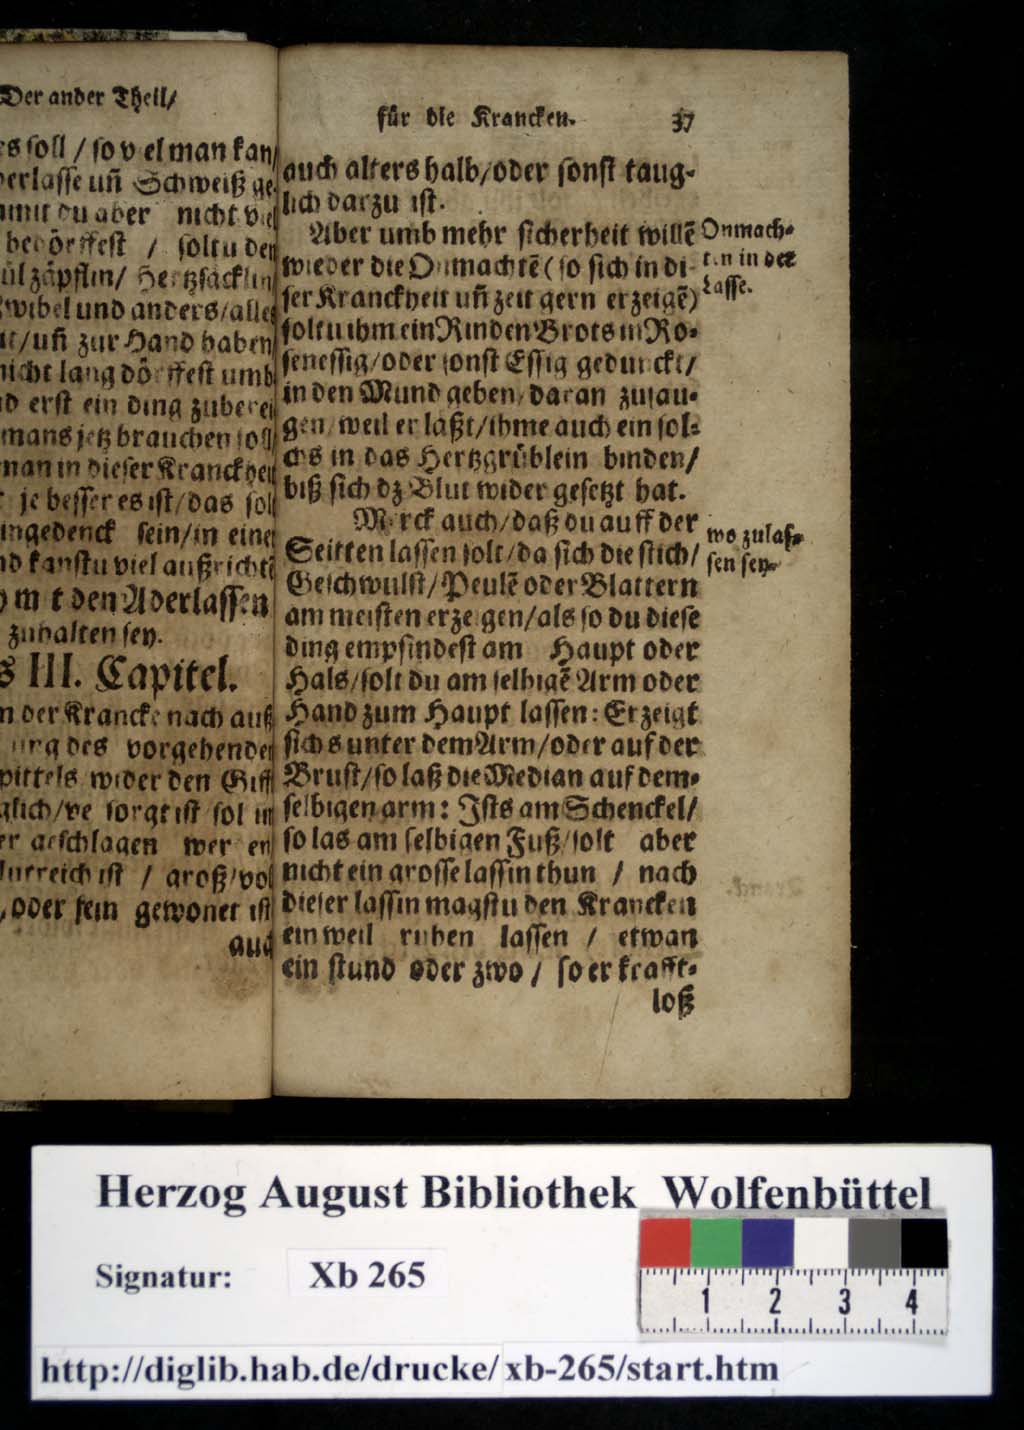 Der ander Theil/
soll / so v el man kan/
erlasse uñ Schweiß ge
du aber nicht
bedörffest / soltu den
zäpflin/ Hertzsäcklin
zwibel und anders/alles
uñ zur Hand haben
nicht lang dörffest umb
erst ein ding zuberei
mans jetz brauchen soll
man in dieser Kranckheit
je besser es ist/das soll
ingedenck sein/in einer
kanstu viel außrichtē
m t den Aderlassen
zuhalten sey.
III. Capitel.
der Krancke nach auß
des vorgehenden
pittels wider den Gifft
sorgt ist sol
geschlagen wer en
ist / groß/vol
oder sein gewonet ist
auch
für die Krancken. 37
auch alters halb/oder sonst taug-
lich darzu ist.
Aber umb mehr sicherheit willē
wieder die Onmachtē (so sich in di-
ser Kranckheit uñ zeit gern erzeigē)
soltu ihm ein Rinden Brots in Ro-
senessig/oder sonst Essig gedunckt/
in den Mund geben/ daran zusau-
gen/ weil er läßt/ihme auch ein sol-
chs in das Hertzgrüblein binden/
biß sich dz Blut wider gesetzt hat.
Onmach-
ten in der
Lässe.
Merck auch/daß du auff der
Seitten lassen solt/da sich die stich/
Geschwulst/Peulē oder Blattern
am meisten erzeigen/als so du diese
ding empfindest am Haupt oder
Hals/solt du am selbigē Arm oder
Hand zum Haupt lassen: Erzeigt
sichs unter dem Arm/oder auf der
Brust/so laß die Median auf dem-
selbigen arm: Ists am Schenckel/
so las am selbigen Fuß/solt aber
nicht ein grosse lassin thun / nach
dieser lassin magstu den Krancken
ein weil ruhen lassen / etwan
ein stund oder zwo / so er krafft-
loß
wo zulas-
sen sey.
Herzog August Bibliothek Wolfenbüttel
Signatur: Xb 265
1 2 3 4
http://diglib.hab.de/drucke/xb-265/start.htm